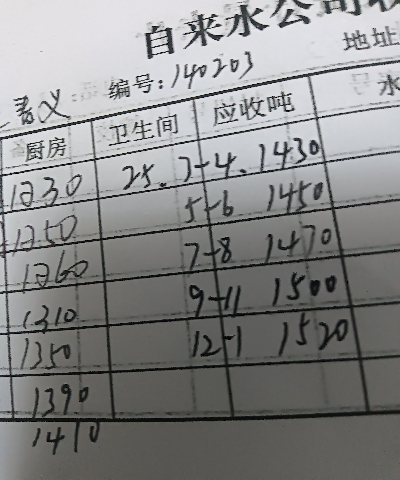 自来水公司收
地址
义 编号:140203
厨房 卫生间 应收吨 水
1230 25.7-4. 1430
1250 5-6 1450
1260 7-8 1470
1310 9-11 1500
1350 12-1 1520
1390
1410